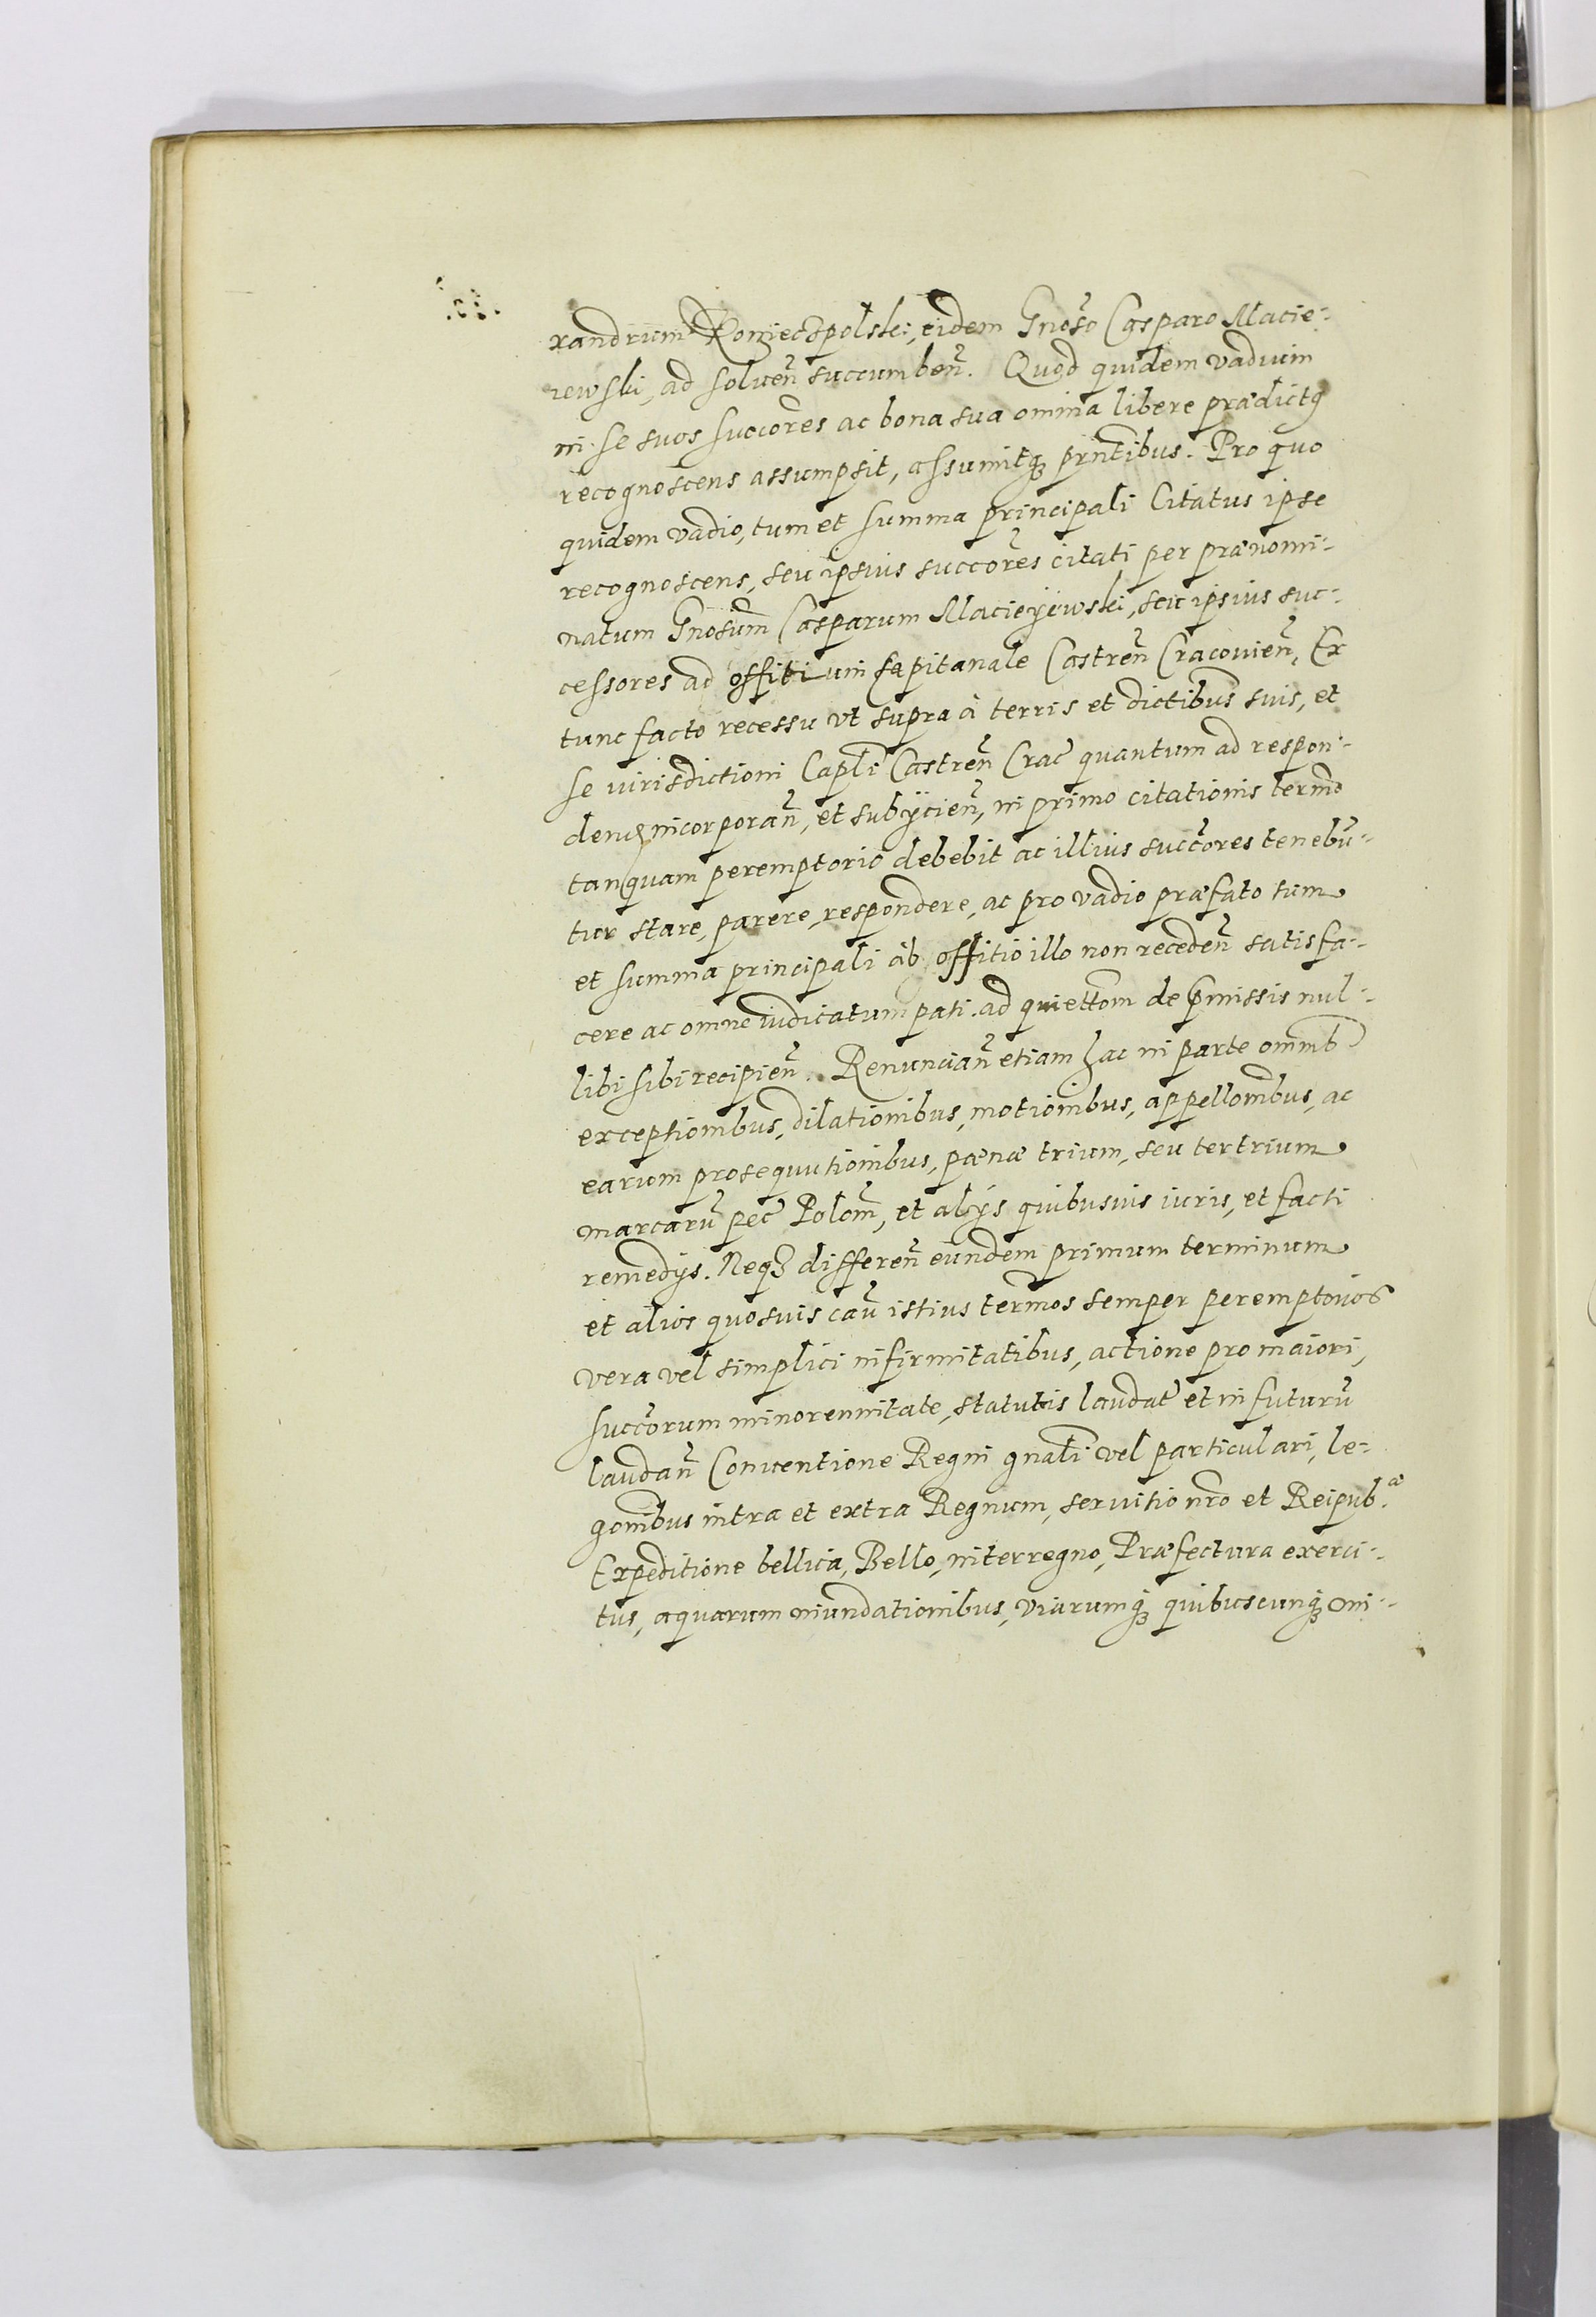 xandrum Koniecspolski, eidem Gnõso Casparo Macie-
iewski, ad soluen̄ succumben̄. Quod quidem vadium
in se suos succores ac bona sua omnia libere prædictꝯ
recognoscens assumpsit, assumitqꝫ pñtibus. Pro quo
quidem vadio, tum et summa principali Citatus ipse
recognoscens, seu ipsius succores citati per prænomi-
natum Gnõsum Casparum Macieyewski, seu ipsius suc-
cessores ad offitium Capitanale Castren̄ Cracouien̄, Ex
tunc facto recessu vt supra à terris et dictibus suis, et
se iurisdictioni Capłi Castren̄ Crac̄ quantum ad respon-
dend incorporan̄, et subÿcien̄, in primo citationis termõ
tanquam peremptorio debebit ac illius succores tenebū-
tur stare, parere, respondere, ac pro vadio præfato tum
et summa principali ab offitio illo non receden̄ satisfa-
cere ac omne iudicatum pati. ad quiettõm de p̄missis nul-
libi sibi recipien̄. Renuncian̄ etiam hac in parte omnib
exceptionibus, dilationibus, motionibus, appellõnibus, ac
earum prosequutionibus, pœnæ trium, seu ter trium
marcarū pec̄ Polom̄, et alÿs quibusuis iuris, et facti
remedÿs. Neqꝫ differen̄ eundem primum terminum
et alios quosuis caū istius termõs semper peremptoiōs
vera vel simplici infirmitatibus, actione pro maiori,
succorum minorennitate, statutis laudat̄ et in futurū
laudan̄ Conuentione Regni gnałi vel particulari, le-
gõnibus intra et extra Regnum, seruitio nr̃o et Reipubᵃᵉ.
Expeditione bellica, Bello, interregno, Præfectura exerci-
tus, aquarum inundationibus, viarumqꝫ quibuscunqꝫ im-